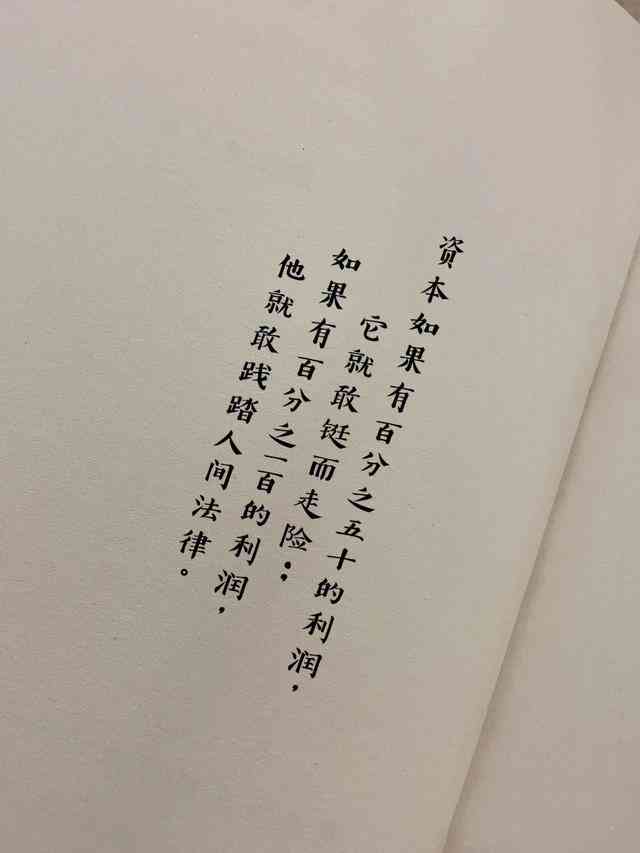 资本如果有百分之五十的利润，
它就敢铤而走险；
如果有百分之一百的利润，
他就敢践踏人间法律。